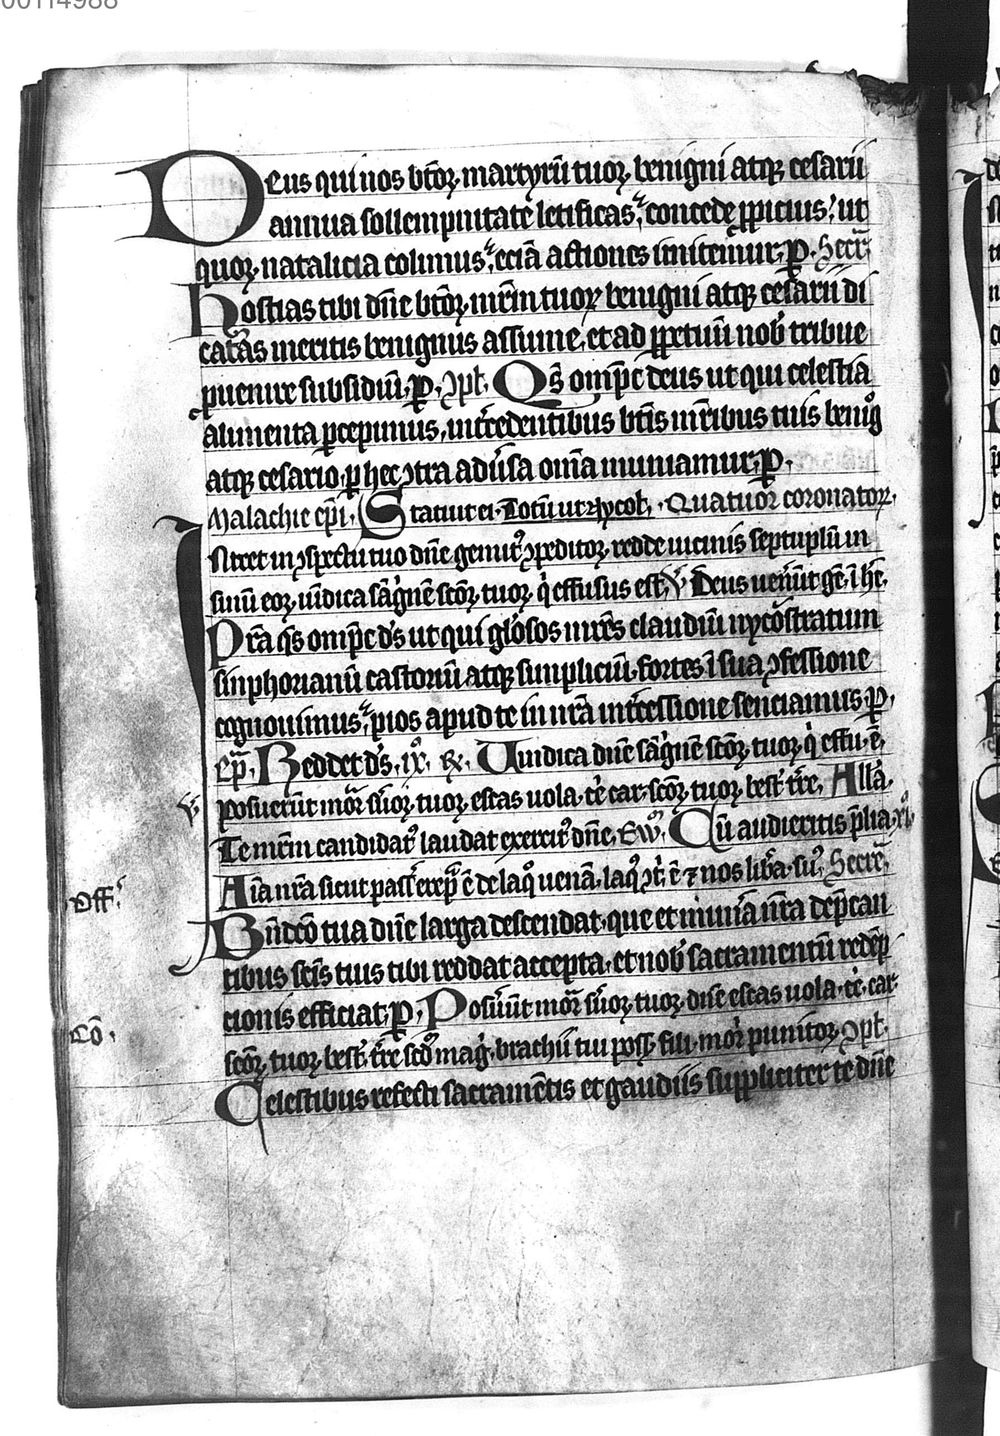 00114988
Deus qui nos btōꝝ martyrū tuoꝝ benigni atqꝫ cesarii
annua sollempnitate letificas, concede ꝓpicius, ut
quoꝝ natalicia colimus, eciā actiones imitemur, ꝑ. Secr̄
Hostias tibi dn̄e btōꝝ mr̄m tuoꝝ benigni atqꝫ cesarii di
catas meritis benignus assume, et ad ꝑpetuū nob̄ tribue
ꝓuenire subsidiū, ꝑ. ꝯpl̄. Qs̄ omp̄c deus ut qui celestia
alimenta ꝑcepimus, int̄cedentibus bt̄is mr̄ibus tuis benigͦ
atqꝫ cesario, ꝑ hec ꝯtra adu's̄a om̄ia muniamur, ꝑ.
Malachie ep̄i, Statuit ei. Totū ut Nycol̄. Quatuor coronatoꝝ.
Intret in ꝯspectu tuo dn̄e gemitꝰ ꝯpeditoꝝ redde uicinis septuplū in
sinū eoꝝ uindica sāguinē sc̄oꝝ tuoꝝ qͥ effusus est, V̄ Deus uener̄ūt gē. ī hē.
Pr̄a qs̄ omp̄c ds̄ ut qui gl̄osos mr̄es claudiū nycostratum
sinphorianū castoriū atqꝫ simpliciū fortes ī sua ꝯfessione
cognouimus, pios apud te in nr̄a int̄cessione senciamus, ꝑ.
Ep̄. Reddet ds̄. ix. R̄. Uindica dn̄e sāguinē sc̄oꝝ tuoꝝ qͥ effu. ē.
V̄ posuerūt mor̄ ser̄uoꝝ tuoꝝ escas uola. ce. car. sc̄oꝝ tuoꝝ best̄. tr̄e, All̄a.
Te mr̄m candidatꝰ laudat exercitꝰ dn̄e, Ewͫ. Cū audieritis p̄lia. xi.
Off. Aīa nr̄a sicut pass̄ erep̄ ē de laqͦ uenā. laqꝰ ꝯt̄. ē ⁊ nos lib̄a. suꝰ. Secrē.
Bn̄dcō tua dn̄e larga descendat, que et mun̄ia nr̄a dep̄can
tibus scīs tuis tibi reddat accepta, et nob̄ sacramentū redēp
cionis efficiat, ꝑ. Posuer̄ūt mor̄ ser̄uoꝝ tuoꝝ dn̄e escas uola. ce. car.
Cō. sc̄oꝝ tuoꝝ best̄. tr̄e scd̄m maḡ. brachii tui poss̄. fili. mor̄ punitoꝝ, ꝯpl̄.
Celestibus refecti sacramētis et gaudiis suppliciter te dn̄e